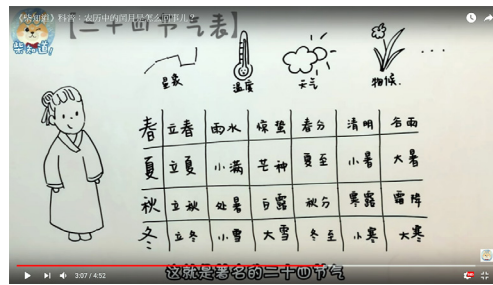 《柴知道》科普：农历中的闰月是怎么回事儿？
【二十四节气表】
柴知道!
星象 温度 天气 物候
春 立春 雨水 惊蛰 春分 清明 谷雨
夏 立夏 小满 芒种 夏至 小暑 大暑
秋 立秋 处暑 白露 秋分 寒露 霜降
冬 立冬 小雪 大雪 冬至 小寒 大寒
这就是著名的二十四节气
3:07 / 4:52